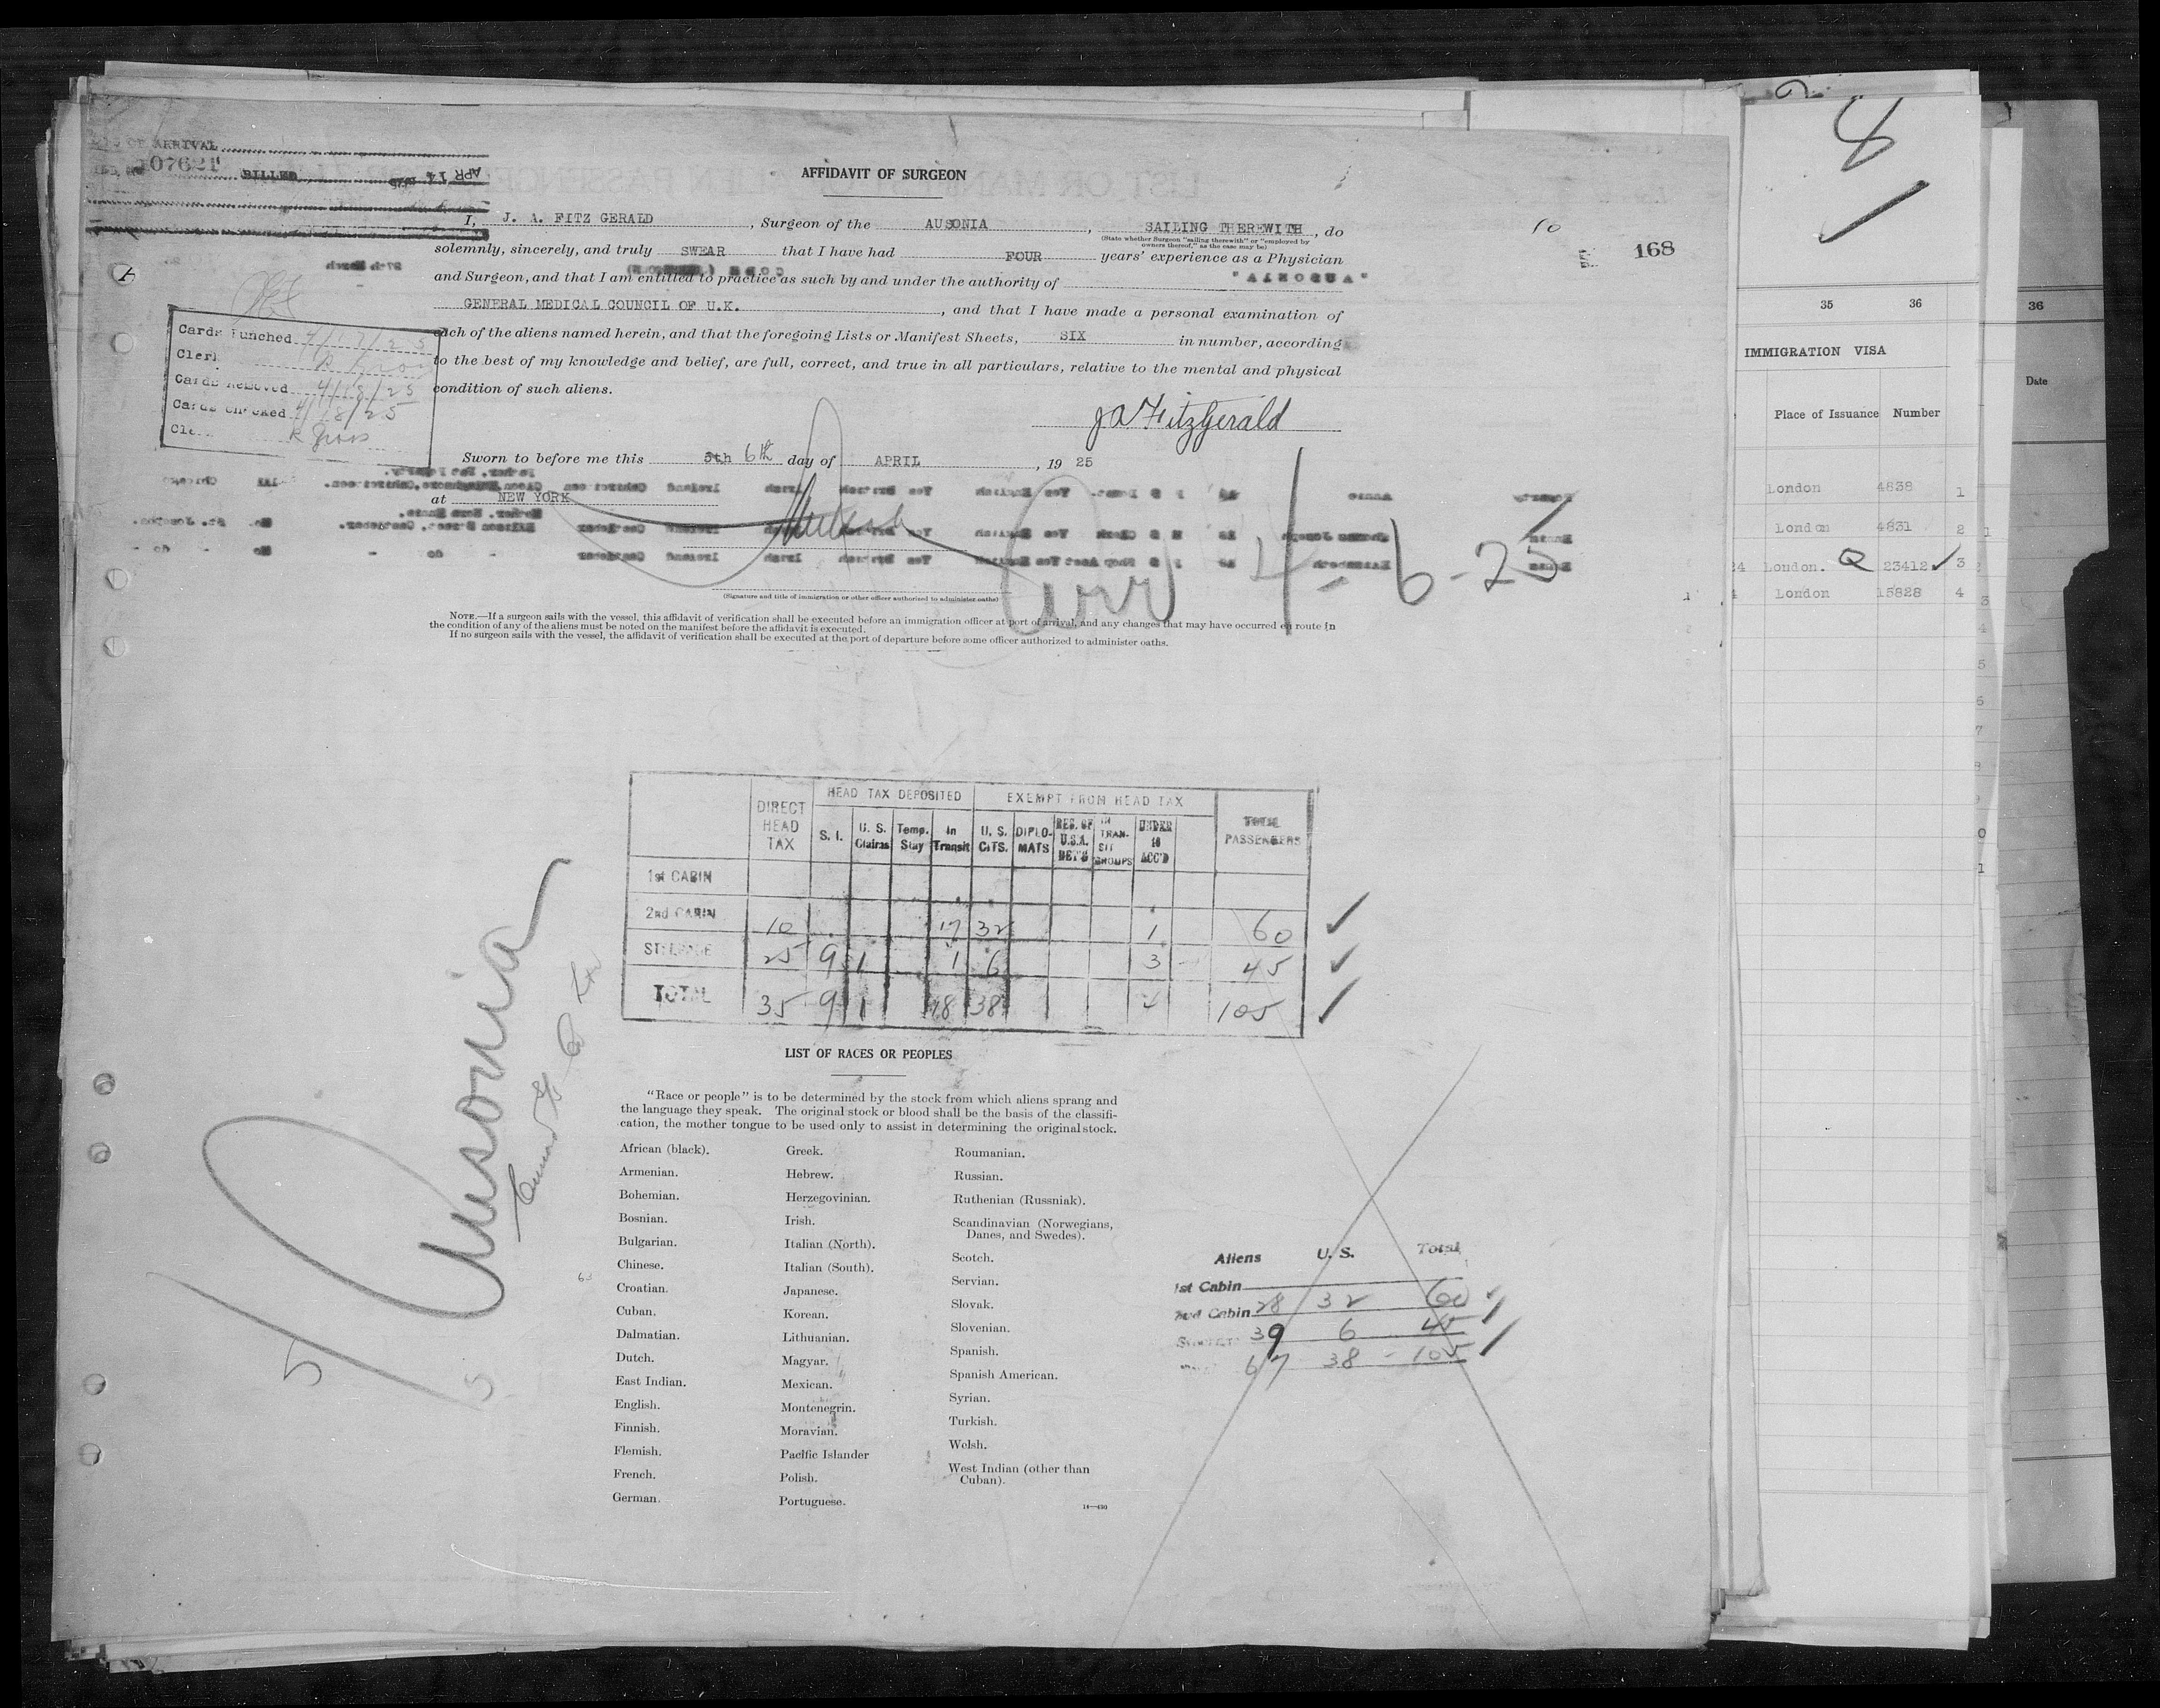 OF ARRIVAL
107621 BILLED APR 14 1925
AFFIDAVIT OF SURGEON
I, J. A. FITZ GERALD, Surgeon of the AUSONIA, SAILING THEREWITH, do
(State whether Surgeon "sailing therewith" or "employed by
owners thereof," as the case may be)
solemnly, sincerely, and truly SWEAR that I have had FOUR years' experience as a Physician
and Surgeon, and that I am entitled to practice as such by and under the authority of
GENERAL MEDICAL COUNCIL OF U.K., and that I have made a personal examination of
each of the aliens named herein, and that the foregoing Lists or Manifest Sheets, SIX in number, according
to the best of my knowledge and belief, are full, correct, and true in all particulars, relative to the mental and physical
condition of such aliens.
10
168
Cards Punched 4/17/25
Clerk
Cards Removed 4/18/25
Cards Checked 4/18/25
Cle
J A Fitzgerald
Sworn to before me this 5th 6th day of APRIL, 19 25
at NEW YORK
Arr 4-6-25
(Signature and title of immigration or other officer authorized to administer oaths)
NOTE.—If a surgeon sails with the vessel, this affidavit of verification shall be executed before an immigration officer at port of arrival, and any changes that may have occurred en route in
the condition of any of the aliens must be noted on the manifest before the affidavit is executed.
If no surgeon sails with the vessel, the affidavit of verification shall be executed at the port of departure before some officer authorized to administer oaths.
DIRECT HEAD TAX HEAD TAX DEPOSITED EXEMPT FROM HEAD TAX TOTAL PASSENGERS
S. I. U. S. Claims Temp. Stay In Transit U. S. CITS. DIPLOMATS RES. OF U.S.A. RET'G IN TRANSIT GROUPS UNDER 16 ACC'D
1st CABIN
2nd CABIN 10 17 32 1 60
STEERAGE 25 9 1 1 6 3 45
TOTAL 35 9 1 18 38 4 105
Ausonia
5
LIST OF RACES OR PEOPLES
"Race or people" is to be determined by the stock from which aliens sprang and
the language they speak. The original stock or blood shall be the basis of the classifi-
cation, the mother tongue to be used only to assist in determining the original stock.
African (black).
Armenian.
Bohemian.
Bosnian.
Bulgarian.
Chinese.
Croatian.
Cuban.
Dalmatian.
Dutch.
East Indian.
English.
Finnish.
Flemish.
French.
German.
Greek.
Hebrew.
Herzegovinian.
Irish.
Italian (North).
Italian (South).
Japanese.
Korean.
Lithuanian.
Magyar.
Mexican.
Montenegrin.
Moravian.
Pacific Islander
Polish.
Portuguese.
Roumanian.
Russian.
Ruthenian (Russniak).
Scandinavian (Norwegians,
Danes, and Swedes).
Scotch.
Servian.
Slovak.
Slovenian.
Spanish.
Spanish American.
Syrian.
Turkish.
Welsh.
West Indian (other than
Cuban).
14—430
Aliens U. S. Total
1st Cabin
2nd Cabin 28 32 60
39 6 45
67 38 - 105
8
35 36
IMMIGRATION VISA
Place of Issuance Number
London 4838 1
London 4831 2
24 London. Q 23412 3
London 15828 4
36
Date